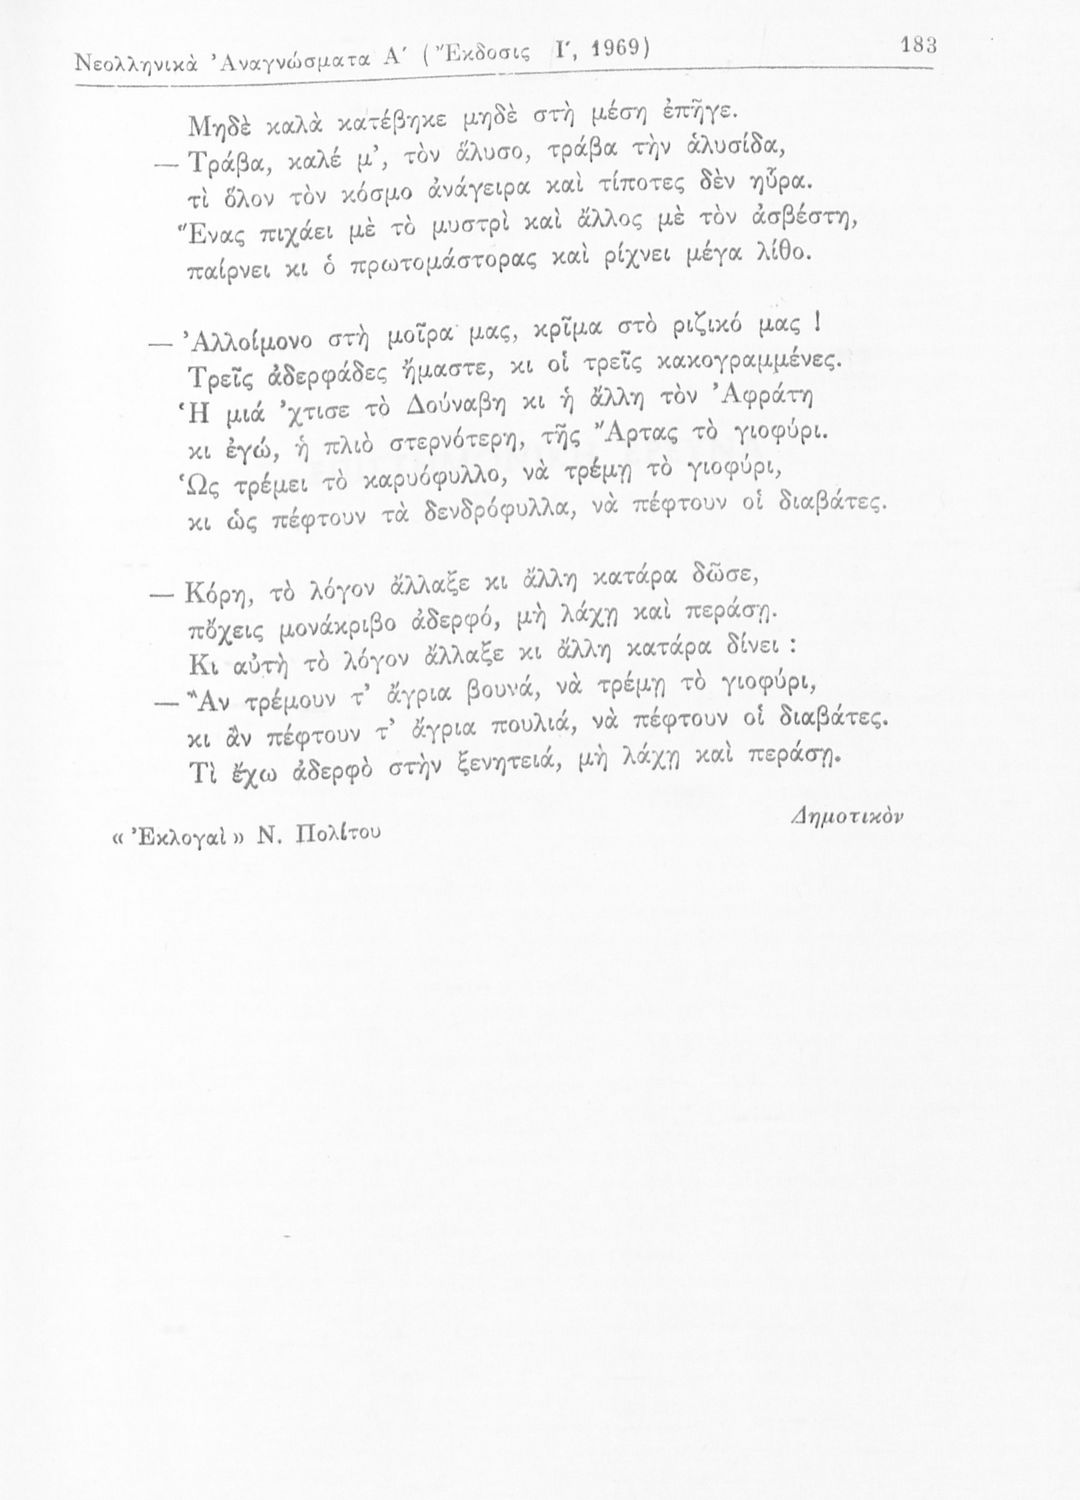 Νεολληνικὰ Ἀναγνώσματα Α΄ (Ἔκδοσις Ι΄, 1969) 183
Μηδὲ καλὰ κατέβηκε μηδὲ στὴ μέση ἐπῆγε.
— Τράβα, καλέ μ’, τὸν ἅλυσο, τράβα τὴν ἁλυσίδα,
τὶ ὅλον τὸν κόσμο ἀνάγειρα καὶ τίποτες δὲν ηὗρα.
Ἕνας πιχάει μὲ τὸ μυστρὶ καὶ ἄλλος μὲ τὸν ἀσβέστη,
παίρνει κι ὁ πρωτομάστορας καὶ ρίχνει μέγα λίθο.
— Ἀλλοίμονο στὴ μοῖρα μας, κρῖμα στὸ ριζικό μας !
Τρεῖς ἀδερφάδες ἤμαστε, κι οἱ τρεῖς κακογραμμένες.
Ἡ μιά ’χτισε τὸ Δούναβη κι ἡ ἄλλη τὸν Ἀφράτη
κι ἐγώ, ἡ πλιὸ στερνότερη, τῆς Ἄρτας τὸ γιοφύρι.
Ὡς τρέμει τὸ καρυόφυλλο, νὰ τρέμῃ τὸ γιοφύρι,
κι ὡς πέφτουν τὰ δενδρόφυλλα, νὰ πέφτουν οἱ διαβάτες.
— Κόρη, τὸ λόγον ἄλλαξε κι ἄλλη κατάρα δῶσε,
πὄχεις μονάκριβο ἀδερφό, μὴ λάχῃ καὶ περάσῃ.
Κι αὐτὴ τὸ λόγον ἄλλαξε κι ἄλλη κατάρα δίνει :
— Ἂν τρέμουν τ’ ἄγρια βουνά, νὰ τρέμῃ τὸ γιοφύρι,
κι ἂν πέφτουν τ’ ἄγρια πουλιά, νὰ πέφτουν οἱ διαβάτες.
Τὶ ἔχω ἀδερφὸ στὴν ξενητειά, μὴ λάχῃ καὶ περάσῃ.
Δημοτικὸν
« Ἐκλογαὶ » Ν. Πολίτου